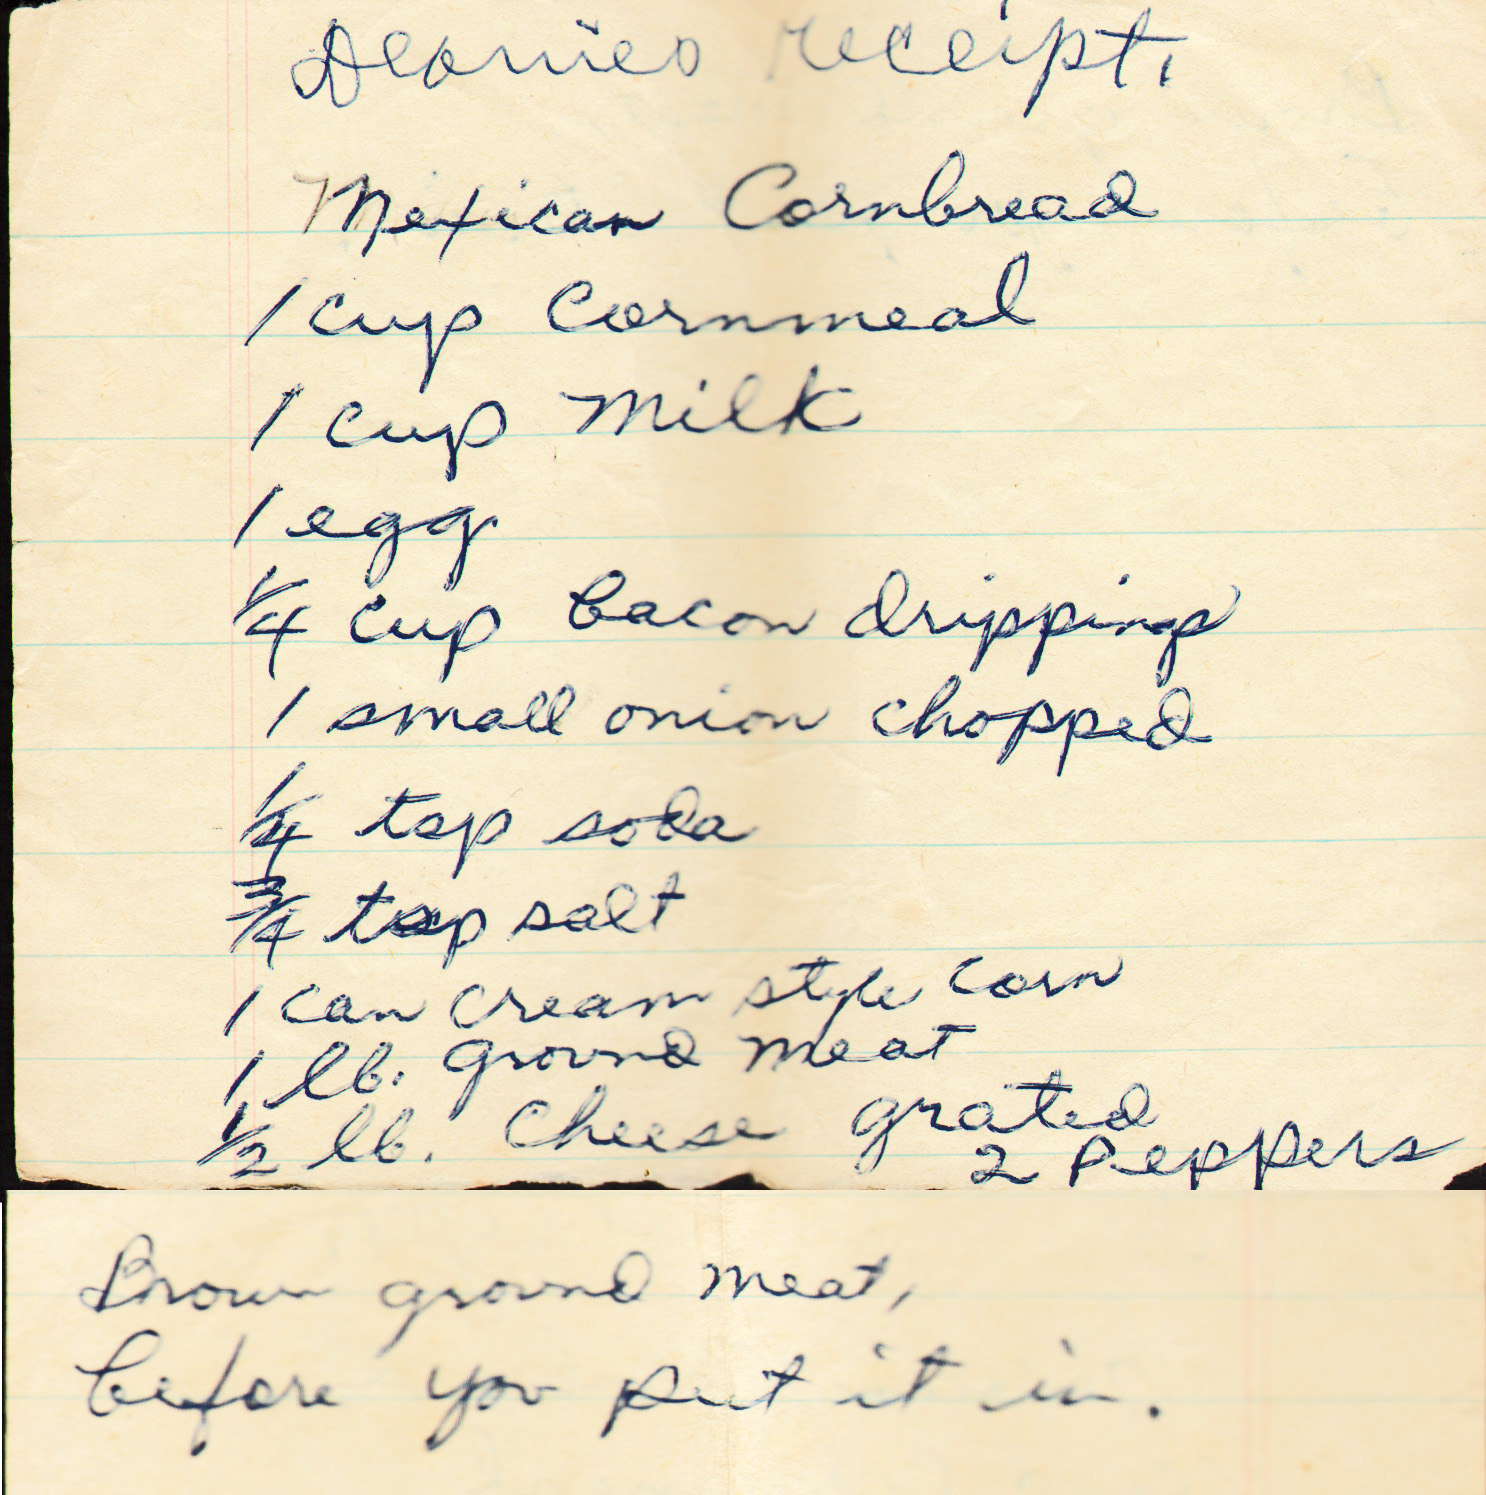 receipt,
Mexican Cornbread
1 cup Cornmeal
1 cup Milk
1 egg
1/4 cup bacon drippings
1 small onion chopped
1/4 tsp soda
3/4 tsp salt
1 can cream style corn
1 lb. ground meat
1/2 lb. Cheese grated
2 Peppers
Brown ground meat,
before you put it in.